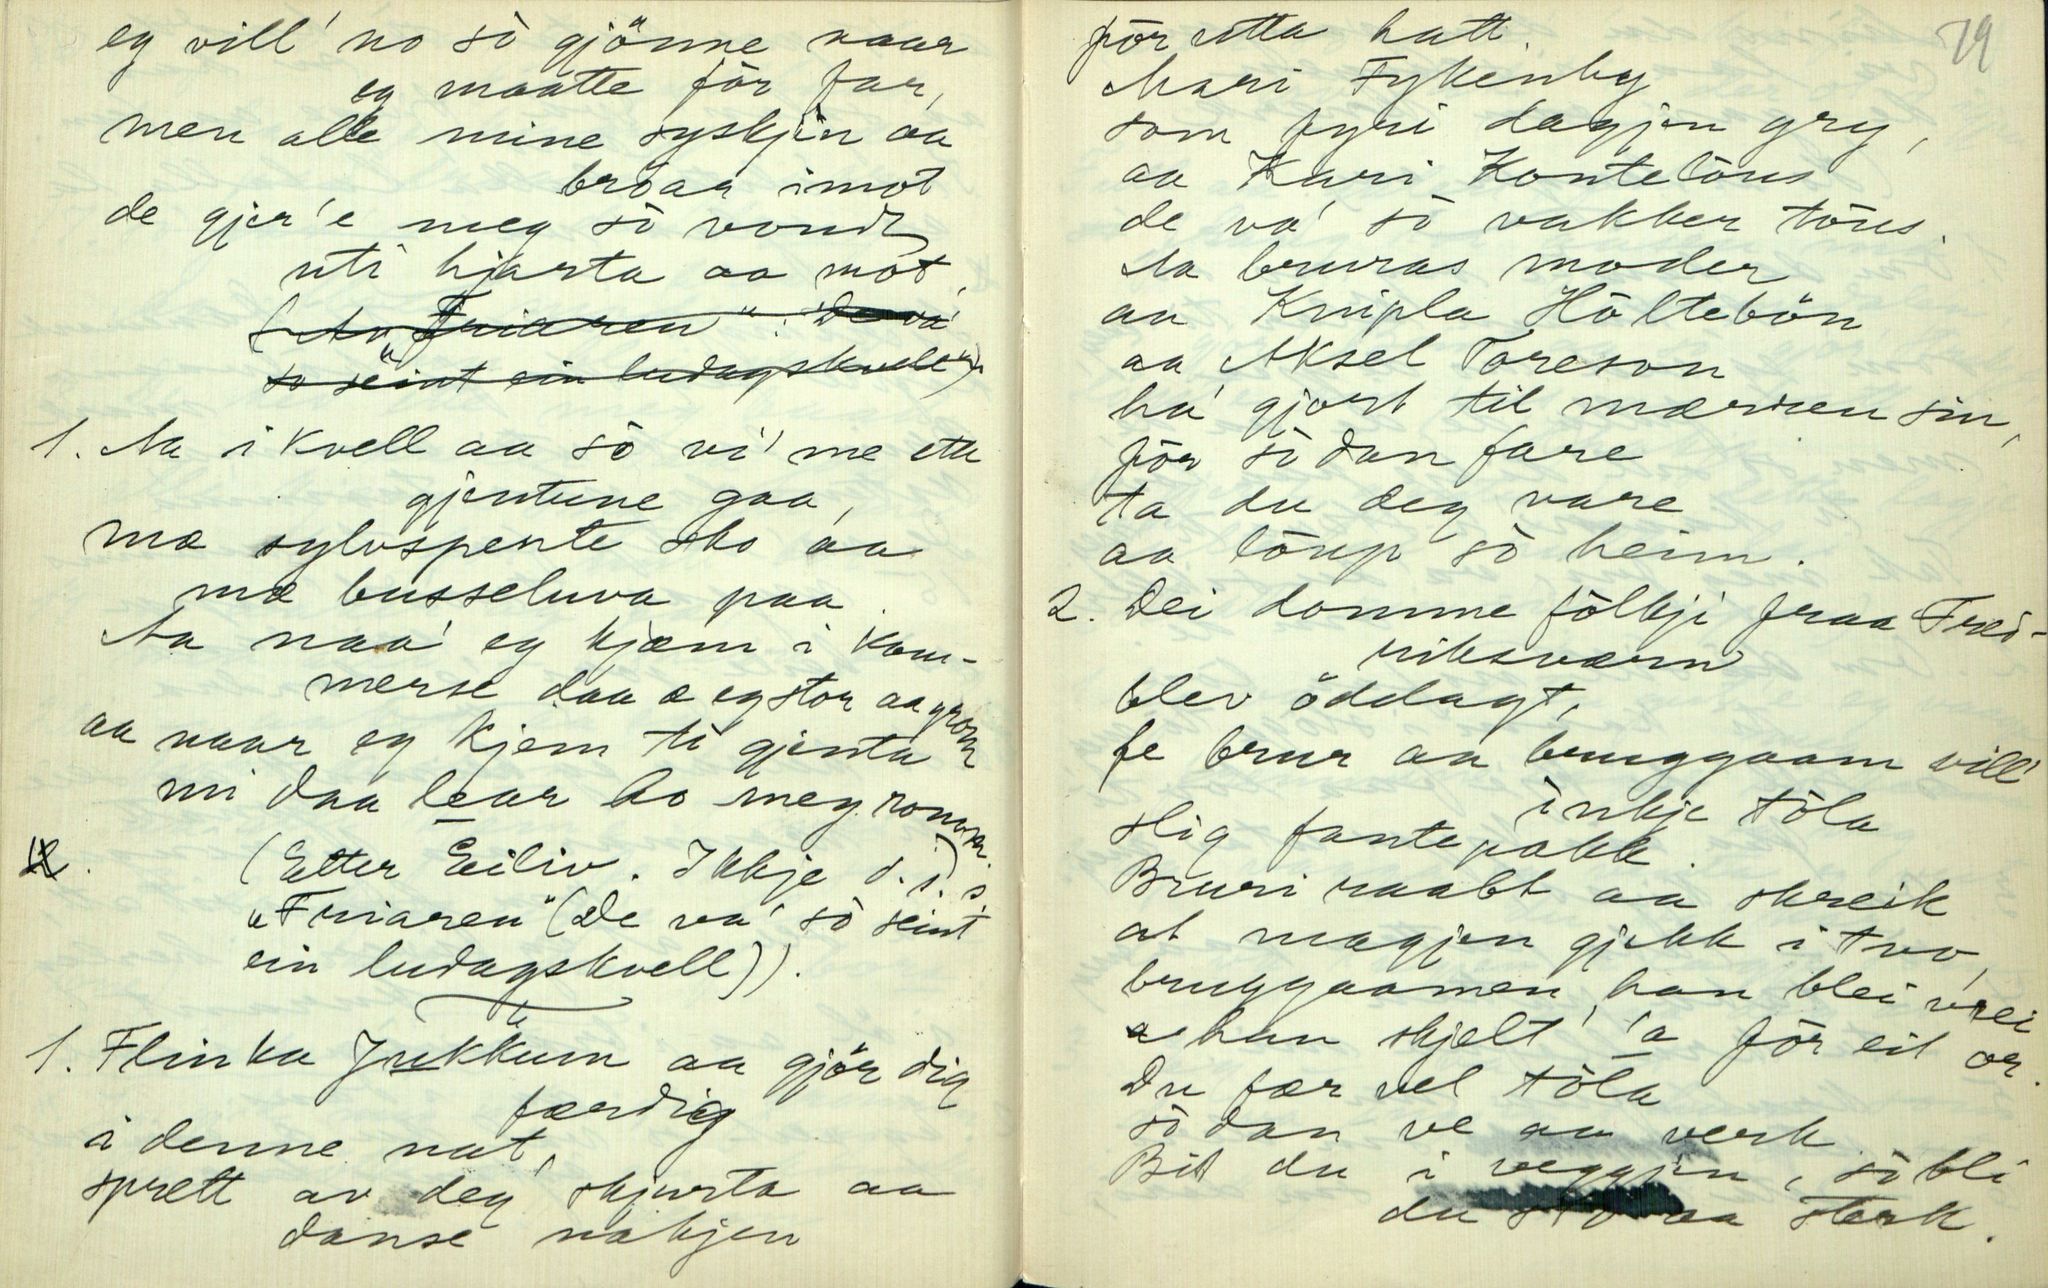 eg vill' no sò gjönne naar
eg maatte för far,
men alle mine syskjin aa
broar imot
de gjer'e meg sò vondt
uti hjarta aa mot,
(Av „Friaren": De va'
so seint ein ludagskveld")
1. Aa i kvell aa sò vi' me ette
gjentune gaa,
mæ sylvspente sko aa
mæ busseluva paa.
Aa naa' eg kjæm i kom-
merse daa æ eg stor aa grom
aa naar eg kjem ti gjenta
mi daa lear ho meg romom.
(Etter Eiliv. Ikkje d. i. s.)
„Friaren" (De va' sò seint
ein ludagskvell)).
1. Flinka Jukkum aa gjör dig
færdig
i denne nat,
sprett av deg skjurta aa
danse nakjen
för utta hatt.
Mari Fykenby
som fyri dagjen gry,
aa Kari Kontelöus
de va' sò vakker töus.
Aa bruras moder
aa Knipla Höltebön
aa Aksel Toreson
ha' gjort til mærren sin,
för södan fare
ta du deg vare
aa löup sò heim.
2. Dei domme fölkji fraa Fred-
riksværn
blev öddagt,
fe brur aa bruggaam vill'
inkje töla
slig fantepakk.
Bruri raabt aa skreik
at magjen gjekk i tvo,
bruggaamen han blei vrei
han skjelt' 'a för eit or.
Du fær vel töla
södan ve aa verk
Bit du i veggjen, sò bli
du sto aa sterk.
79